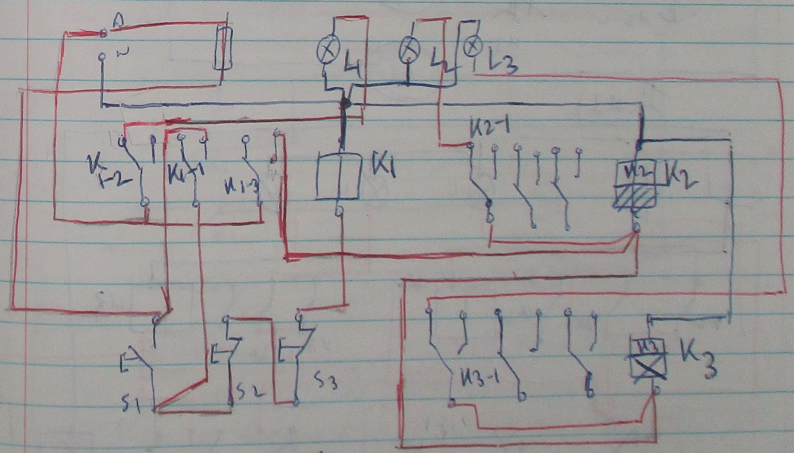 A
N
L1
L2
L3
K2-1
K
1-2
K1-1
K1-3
K1
K2
K2
K3-1
K3
K3
S1
S2
S3